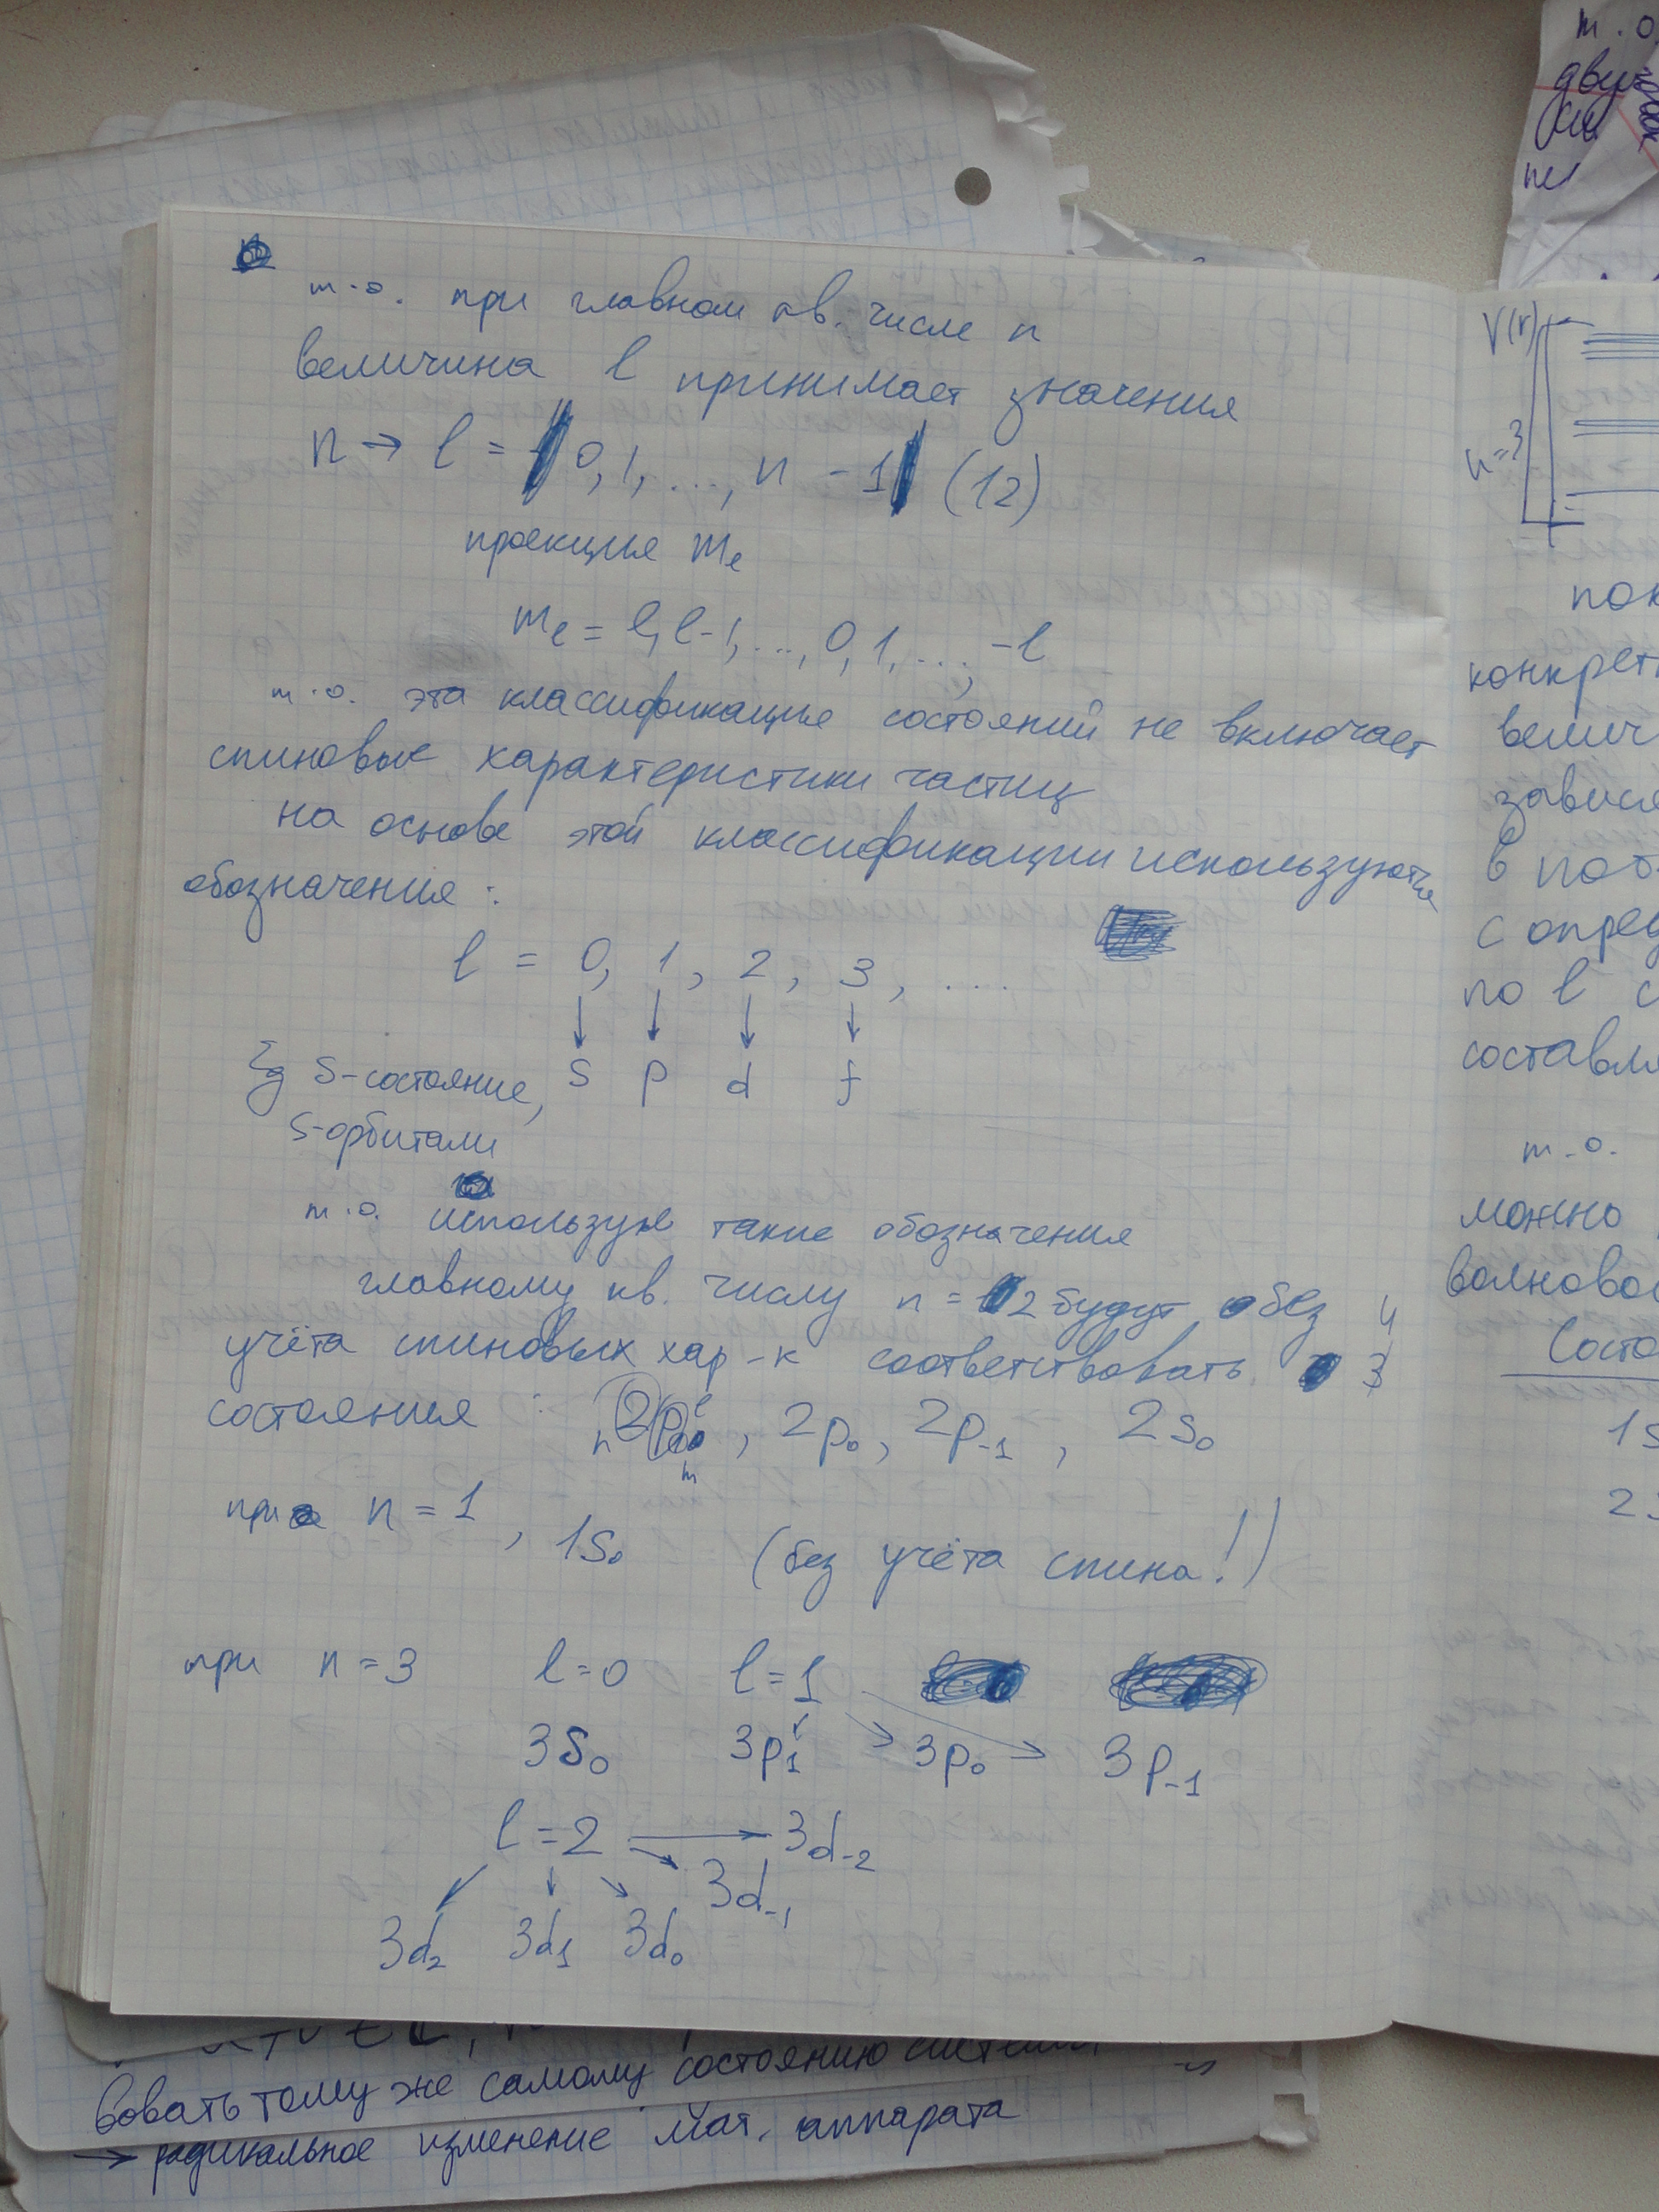 т.о. при главном кв. числе n
величина l принимает значения
n → l = 0, 1, ..., n - 1 (12)
проекция mₑ
mₑ = l, l-1, ..., 0, 1, ..., -l
т.о. эта классификация состояний не включает
спиновые характеристики частиц
на основе этой классификации используются
обозначения:
l = 0, 1, 2, 3, ...
↓ ↓ ↓ ↓
S-состояние, s p d f
S-орбитали
т.о. используя такие обозначения
главному кв. числу n = 2 будут без 4
учёта спиновых хар-к соответствовать 3
состояния: 2p , 2p₀, 2p₋₁, 2s₀
n l m
при n = 1, 1s₀ (без учёта спина!)
при n = 3 l=0 l=1
3s₀ 3p₁ → 3p₀ → 3p₋₁
l = 2 → 3d₋₂
3d₋₁
3d₂ 3d₁ 3d₀
V(r)
n=3
пок
конкрет
велич
завися
в пот
с опред
по l с
составл
т.о.
можно
волново
Состо
1s
2s
т.о.
вовать тому же самому состоянию
→ радикальное изменение мат. аппарата